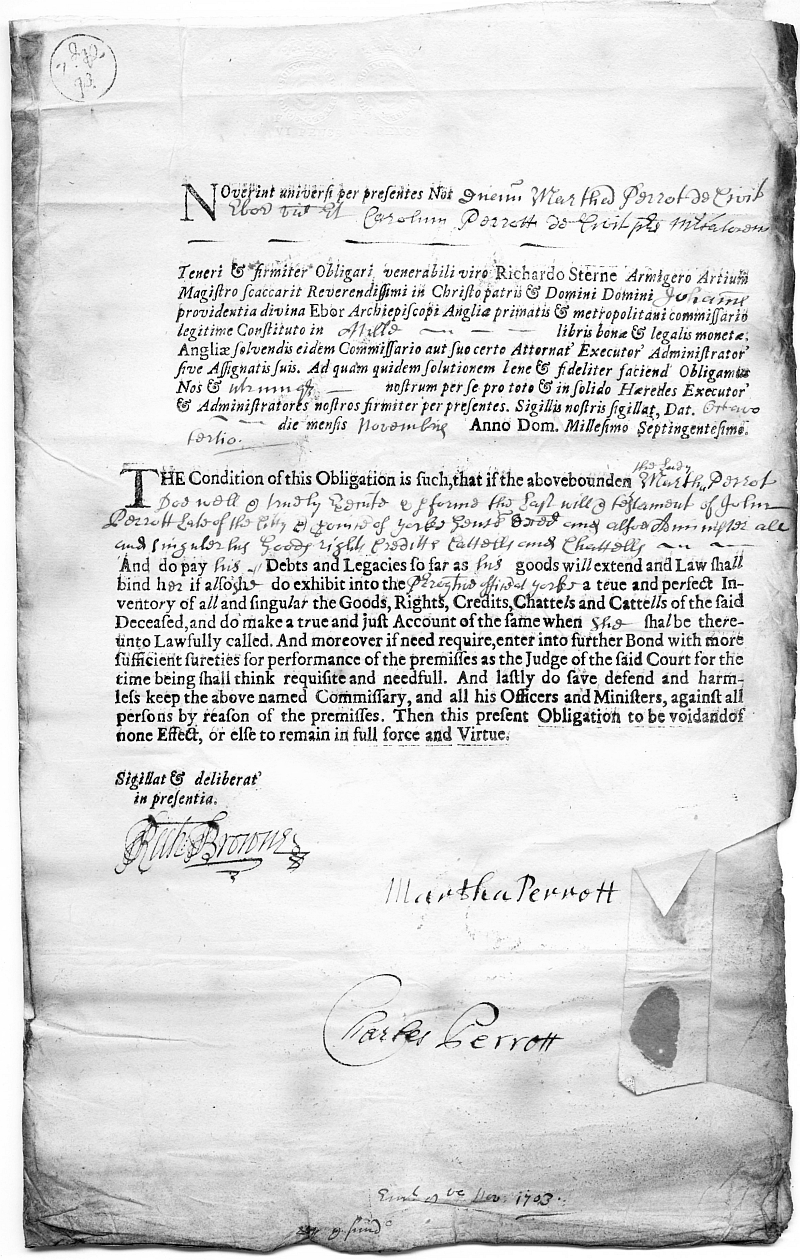 NOverint universi per presentes Nos Martha Perrot de Civit
Ebor vid Et Carolum Perrott de Civit
Teneri & firmiter Obligari venerabili viro Richardo Sterne Armigero Artium
Magistro scaccarii Reverendissimi in Christo patris & Domini Domini Johannis
providentia divina Ebor Archiepiscopi Angliæ primatis & metropolitani commissario
legitime Constituto in Mille libris bonæ & legalis monetæ,
Angliæ solvendis eidem Commissario aut suo certo Attornat' Executor' Administrator'
sive Assignatis suis. Ad quam quidem solutionem bene & fideliter faciend Obligamus
Nos & utrumque nostrum per se pro toto & in solido Hæredes Executor'
& Administratores nostros firmiter per presentes. Sigillis nostris sigillat, Dat. Octavo
die mensis Novembris Anno Dom. Millesimo Septingentesimo.
tertio.
the said
THE Condition of this Obligation is such, that if the abovebounden Martha Perrot
Doe well & truely Execute & pforme the Last will & testament of John
Perrott Late of the Citty & of Yorke Gent Deced and allso Aminister all
and singuler his Goods rights Creditts Cattells and Chattells
And do pay his Debts and Legacies so far as his goods will extend and Law shall
bind her if also she do exhibit into the office at yorke a true and perfect In-
ventory of all and singular the Goods, Rights, Credits, Chattels and Cattells of the said
Deceased, and do make a true and just Account of the same when she shal be there-
unto Lawfully called. And moreover if need require, enter into further Bond with more
sufficient sureties for performance of the premisses as the Judge of the said Court for the
time being shall think requisite and needfull. And lastly do save defend and harm-
less keep the above named Commissary, and all his Officers and Ministers, against all
persons by reason of the premisses. Then this present Obligation to be void and of
none Effect, or else to remain in full force and Virtue.
Sigillat & deliberat'
in presentia.
Rich Browne
Martha Perrott
Charles Perrott
Nov. 1703.